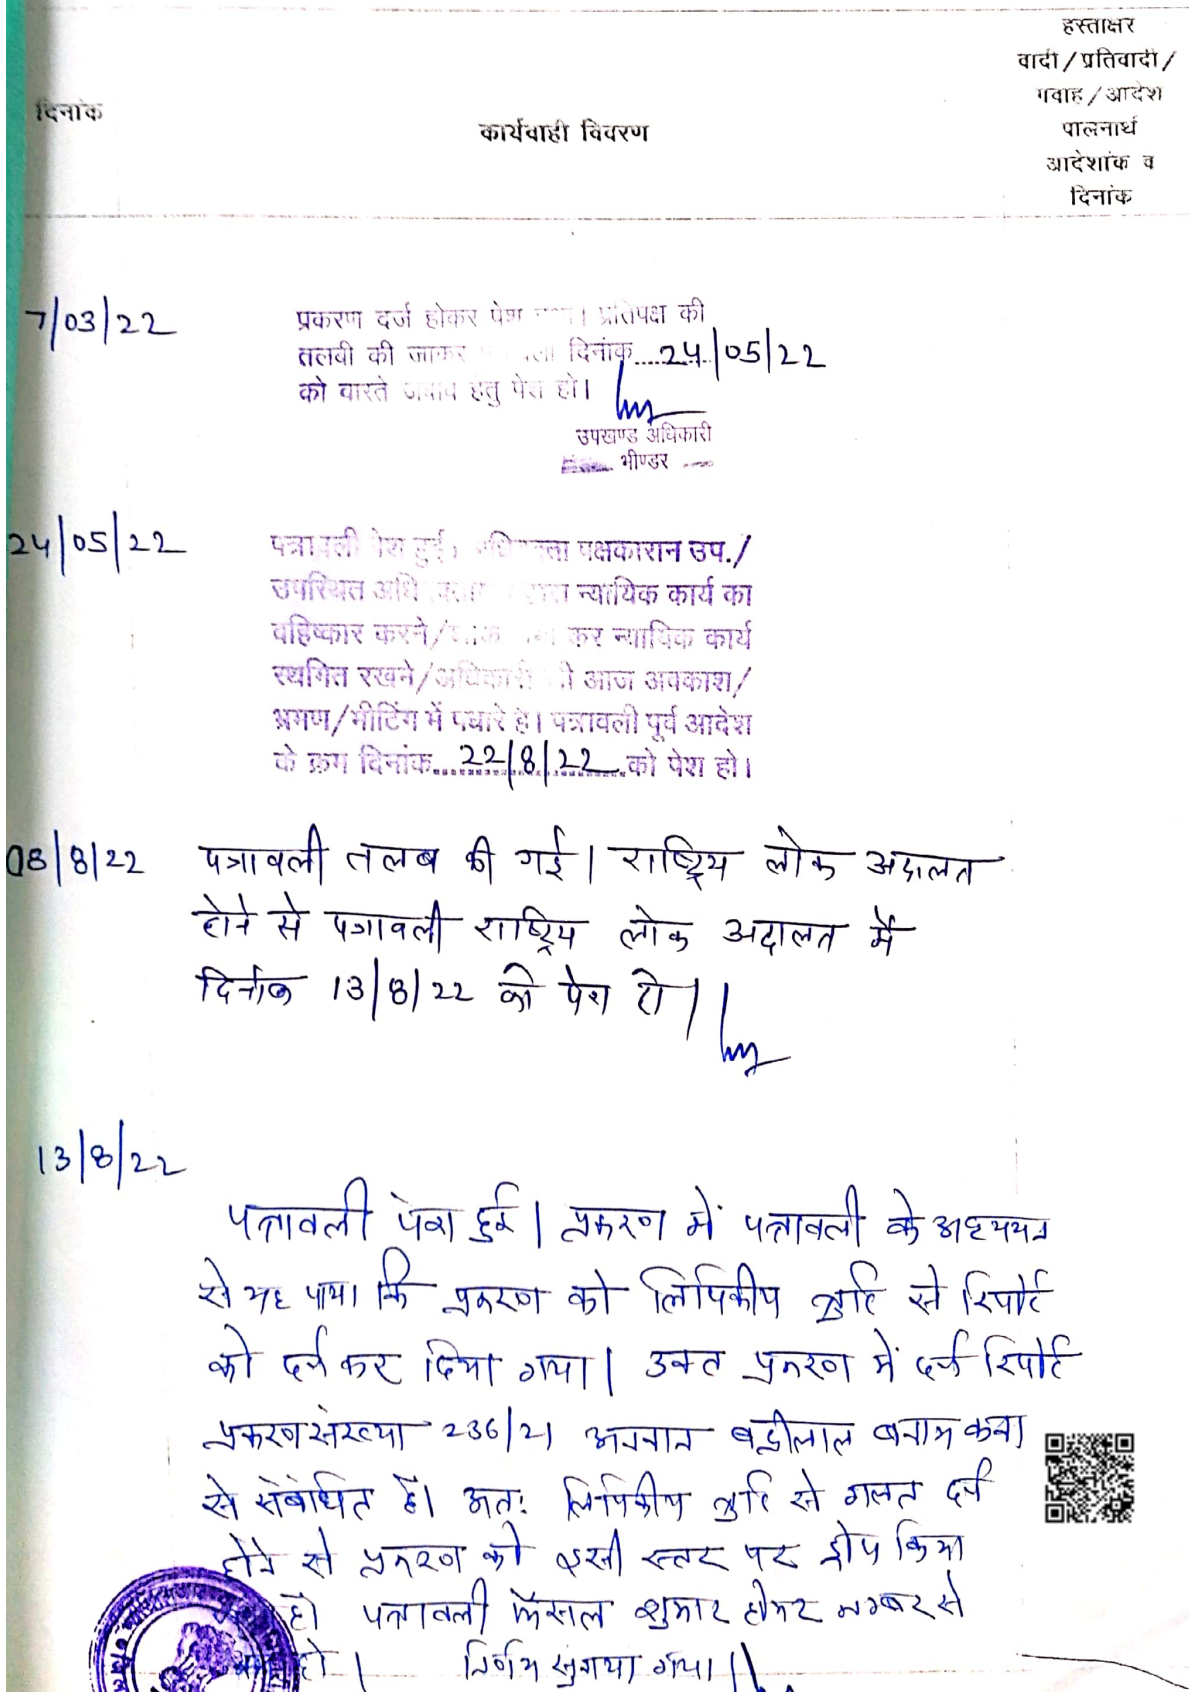 हस्ताक्षर
वादी/प्रतिवादी/
गवाह/आदेश
पालनार्थ
आदेशांक व
दिनांक
दिनांक
कार्यवाही विवरण
7/03/22
प्रकरण दर्ज होकर पेश । प्रतिपक्ष की
तलबी की जाकर दिनांक 24/05/22
को वास्ते जवाब हेतु पेश हो।
उपखण्ड अधिकारी
भीण्डर
24/05/22
पत्रावली पेश हुई, पक्षकारान उप./
उपस्थित न्यायिक कार्य का
वहिष्कार करने/ कर न्यायिक कार्य
स्थगित रखने/अधिकारी आज अवकाश/
भ्रमण/मीटिंग में पधारे है। पत्रावली पूर्व आदेश
के क्रम दिनांक 22/8/22 को पेश हो।
08/8/22
पत्रावली तलब की गई। राष्ट्रिय लोक अदालत
होने से पत्रावली राष्ट्रिय लोक अदालत में
दिनांक 13/8/22 को पेश हो।
13/8/22
पत्रावली पेश हुई। प्रकरण में पत्रावली के अध्ययन
से यह पाया कि प्रकरण को लिपिकीय त्रुटि से रिपोर्ट
को दर्ज कर दिया गया। उक्त प्रकरण में दर्ज रिपोर्ट
प्रकरण संख्या 236/21 बनाम
से संबंधित है। अतः लिपिकीय त्रुटि से गलत दर्ज
होने से प्रकरण को इसी स्तर पर ड्रोप किया
है। पत्रावली फैसल शुमार होकर नम्बर से
हो। निर्णय सुनाया गया।